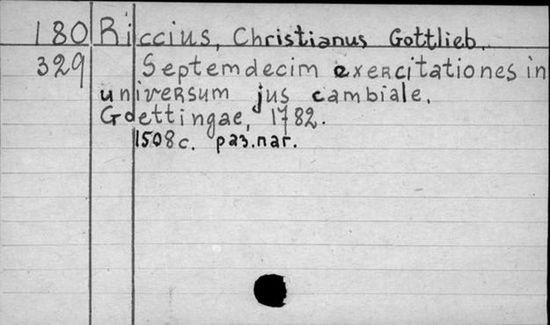 180 Riccius, Christianus Gottlieb.
329 Septemdecim exercitationes in
universum jus cambiale.
Goettingae, 1782.
1508c. раз.паг.